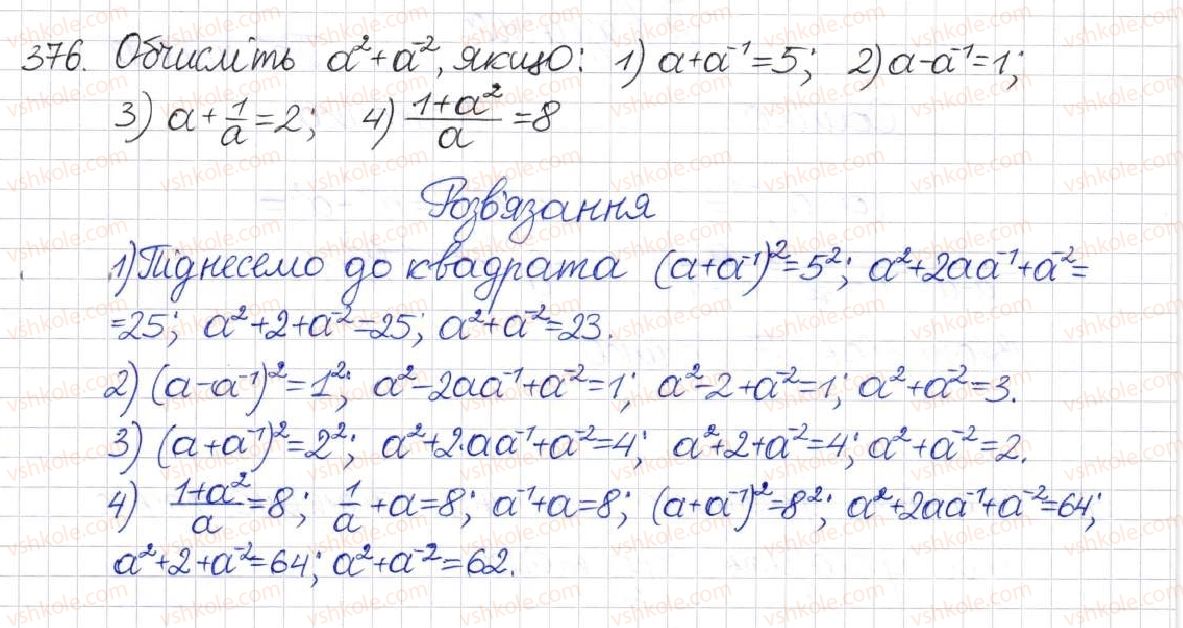 376. Обчисліть a²+a⁻², якщо: 1) a+a⁻¹=5; 2) a-a⁻¹=1;
3) a+1/a=2; 4) (1+a²)/a=8
Розв'язання
1) Піднесемо до квадрата (a+a⁻¹)²=5²; a²+2aa⁻¹+a⁻²=
=25; a²+2+a⁻²=25; a²+a⁻²=23.
2) (a-a⁻¹)²=1²; a²-2aa⁻¹+a⁻²=1; a²-2+a⁻²=1; a²+a⁻²=3.
3) (a+a⁻¹)²=2²; a²+2·aa⁻¹+a⁻²=4; a²+2+a⁻²=4; a²+a⁻²=2.
4) (1+a²)/a=8; 1/a+a=8; a⁻¹+a=8; (a+a⁻¹)²=8²; a²+2aa⁻¹+a⁻²=64;
a²+2+a⁻²=64; a²+a⁻²=62.
vshkole.com